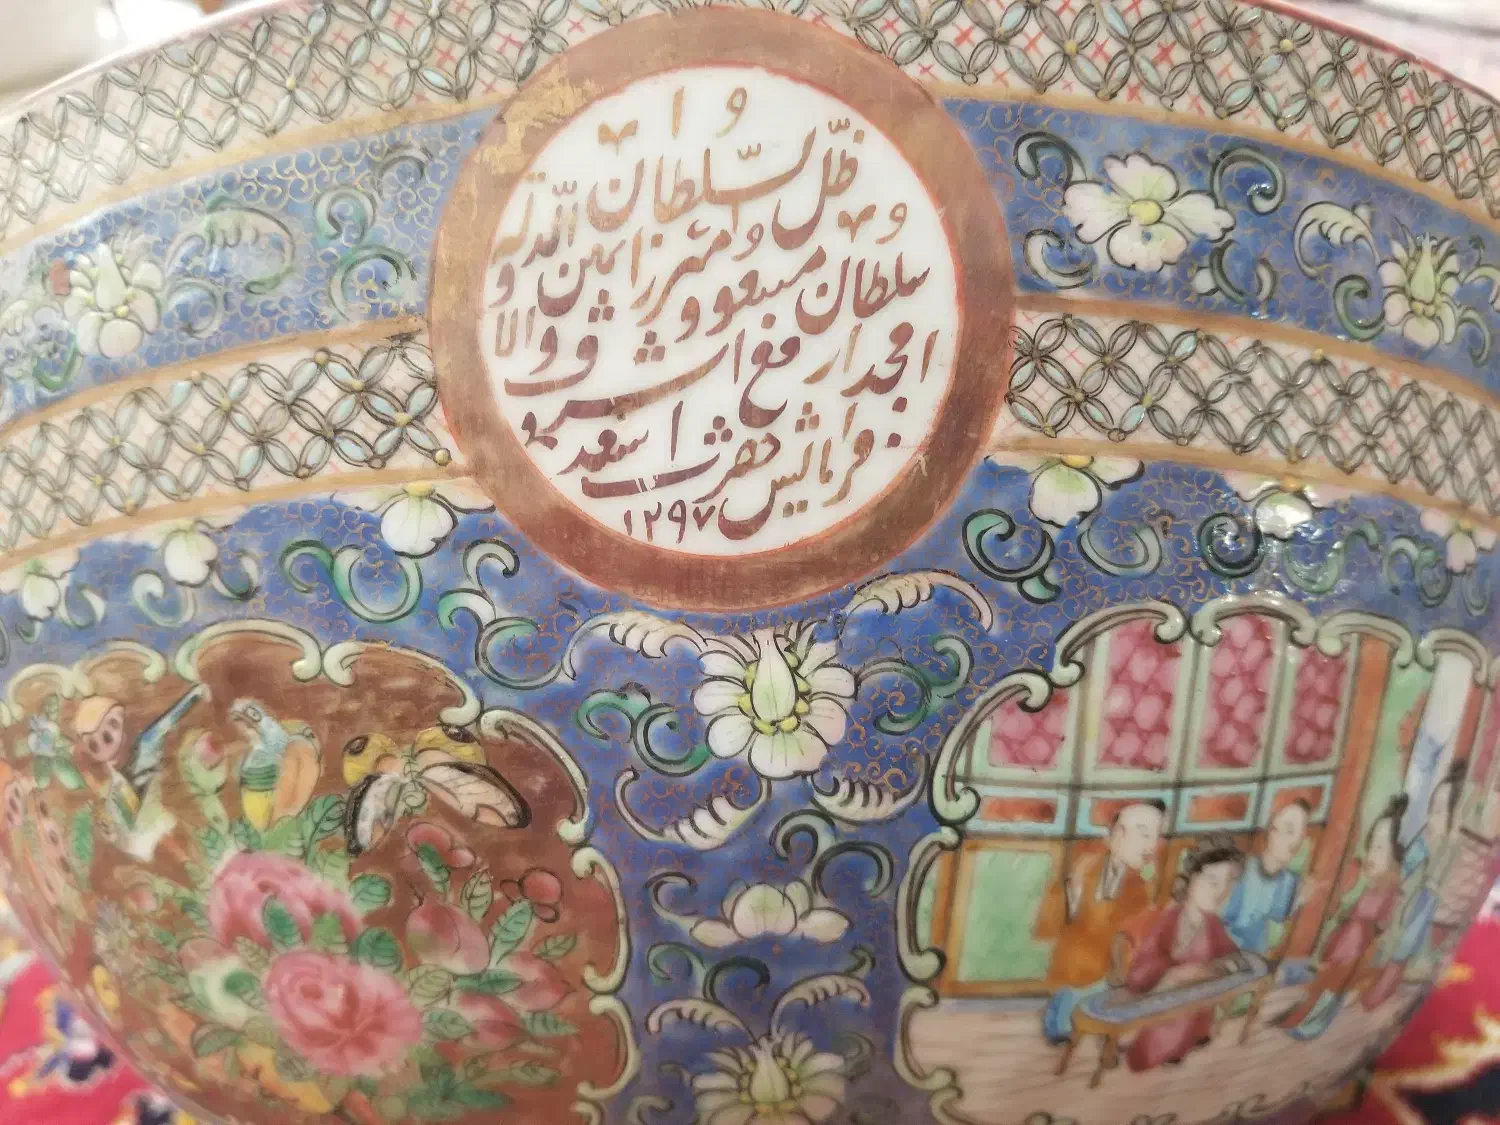 فرمایش حضرت اسعد
امجد ارفع اشرف والا
سلطان مسعود میرزا یمین الدوله
ظل السلطان
۱۲۹۷